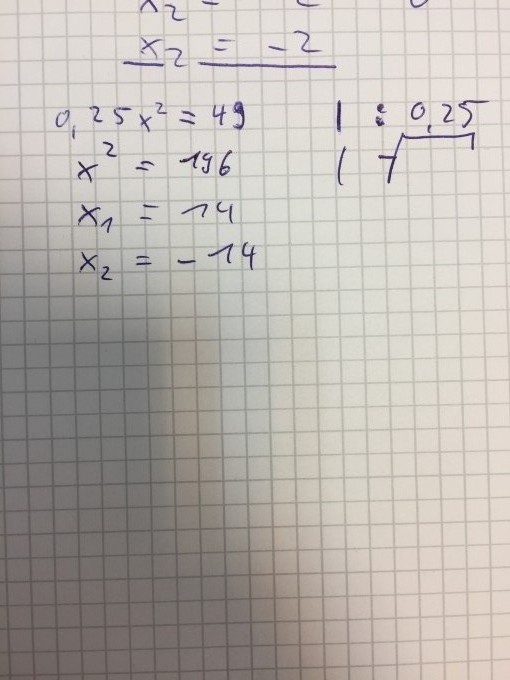 x₂ = - 2
0,25x² = 49 | : 0,25
x² = 196 | √
x₁ = 14
x₂ = - 14